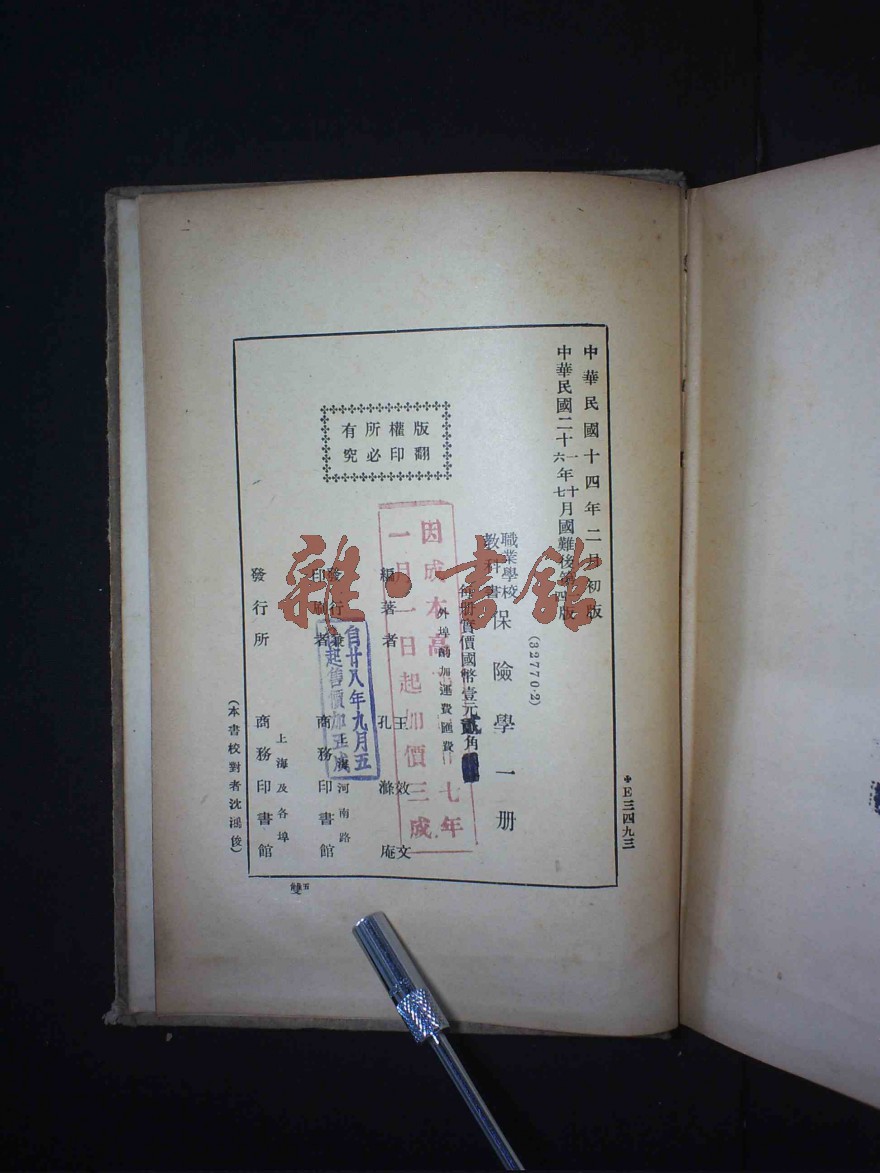 中華民國十四年二月初版
中華民國二十一年十月國難後第
六 七 四版
版權所有
翻印必究
職業學校
教科書
保險學一册
(32770·2)
每册實價國幣壹元貳角
外埠酌加運費匯費
編著者
王效文
孔滌庵
發行兼
印刷者
上海河南路
商務印書館
發行所
上海及各埠
商務印書館
(本書校對者沈鴻俊)
E三四九三
因成本高
七年
一月一日起加價三成
自廿八年九月五
起售價加五成
雜·書館